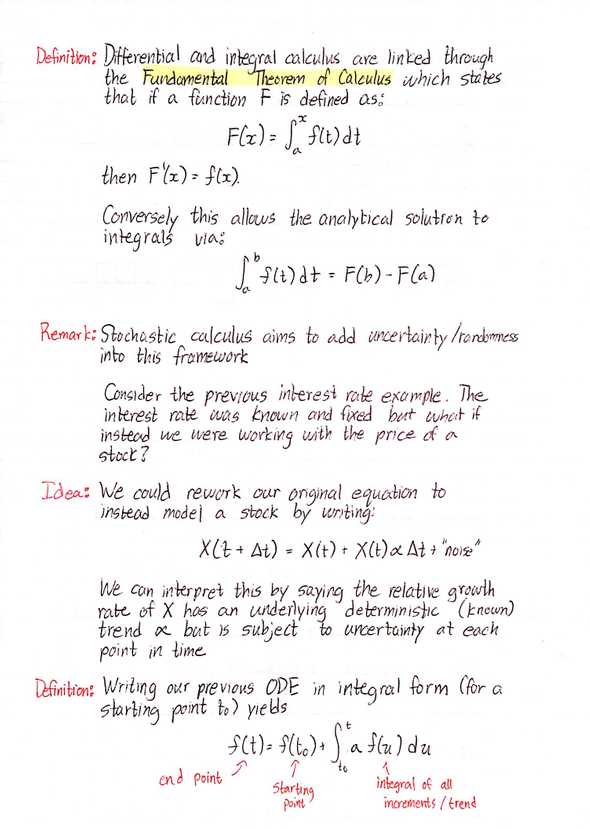 Definition: Differential and integral calculus are linked through
the Fundamental Theorem of Calculus which states
that if a function F is defined as:
F(x) = ∫_a^x f(t) dt
then F'(x) = f(x).
Conversely this allows the analytical solution to
integrals via:
∫_a^b f(t) dt = F(b) - F(a)
Remark: Stochastic calculus aims to add uncertainty/randomness
into this framework
Consider the previous interest rate example. The
interest rate was known and fixed but what if
instead we were working with the price of a
stock?
Idea: We could rework our original equation to
instead model a stock by writing:
X(t + Δt) = X(t) + X(t) ∝ Δt + "noise"
We can interpret this by saying the relative growth
rate of X has an underlying deterministic (known)
trend ∝ but is subject to uncertainty at each
point in time
Definition: Writing our previous ODE in integral form (for a
starting point t₀) yields
f(t) = f(t₀) + ∫_{t₀}^t a f(u) du
end point
starting
point
integral of all
increments / trend